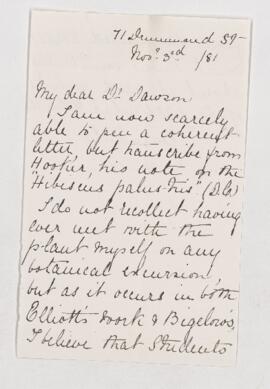 71 Drummond St-
Novr 3rd /81
My dear Dr Dawson
I am now scarcely
able to pen a coherent
letter, but transcribe from
Hooker, his note on the
"Hibiscus palus-tris" (D.C.)
I do not recollect having
ever met with the
plant myself on any
botanical excursion
but as it occurs in both
Elliott's work & Bigelow's,
I believe that Students